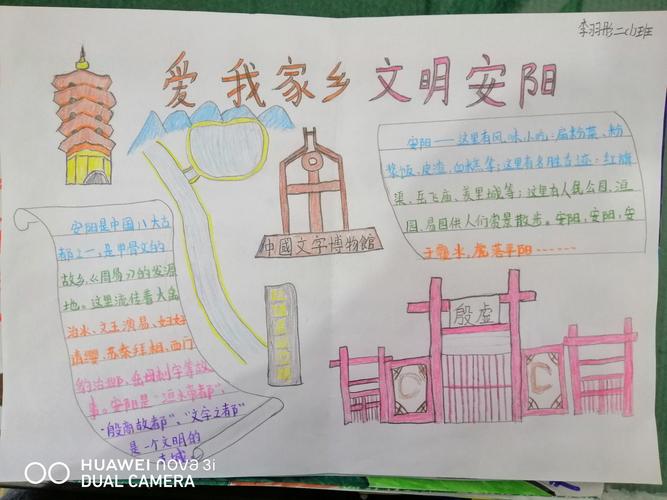 李羽彤二小班
爱我家乡 文明安阳
安阳——这里有风味小吃：扁粉菜、粉
浆饭、皮渣、血糕等；这里有名胜古迹：红旗
渠、岳飞庙、羑里城等；这里有人民公园、洹
园、易园供人们赏景散步。安阳，安阳，安
中國文字博物館
安阳是中国八大古
都之一，是甲骨文的
故乡，《周易》的发源
地。这里流传着大禹
治水、文王演易、妇好
请缨、苏秦拜相、西门
豹治邺、岳母刺字等故
事。安阳是"洹水帝都"、
"殷商故都"、"文字之都"
是一个文明的
古城
殷虚
HUAWEI nova 3i
DUAL CAMERA